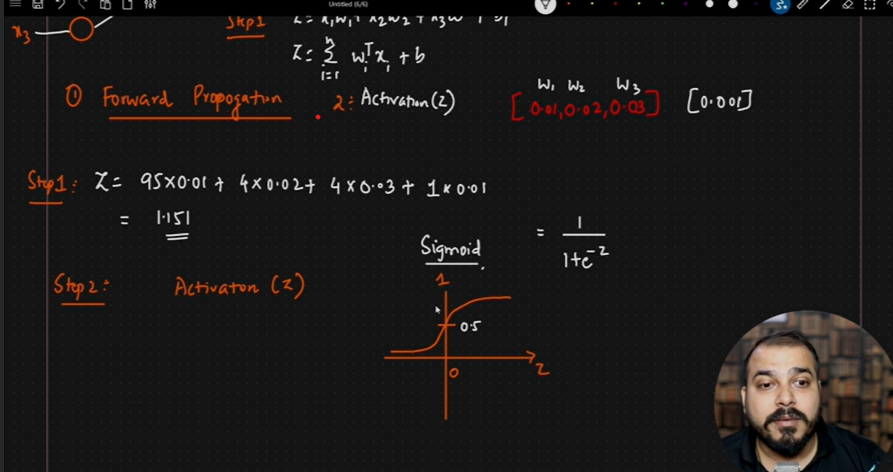 Untitled (6/6)
Step 1
Z = x₁w₁ + x₂w₂ + x₃w
x₃
Z = Σ wᵢᵀxᵢ + b
n
i=1
① Forward Propogation
2: Activation(Z)
w₁ w₂ w₃
[0.01, 0.02, 0.03] [0.001]
Step1: Z = 95×0.01 + 4×0.02 + 4×0.03 + 1×0.01
= 1.151
Sigmoid
= 1 / 1+e⁻ᶻ
Step2: Activaton (Z)
1
0.5
0
Z